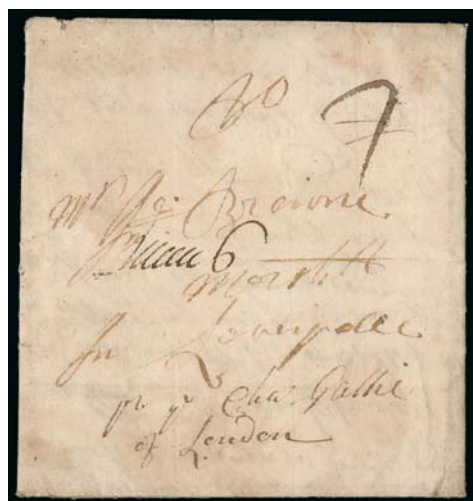 To 7
Mr Ja: Browne
6
Mercht
In Leverpolle
pr ye Cha: Gallie
of London